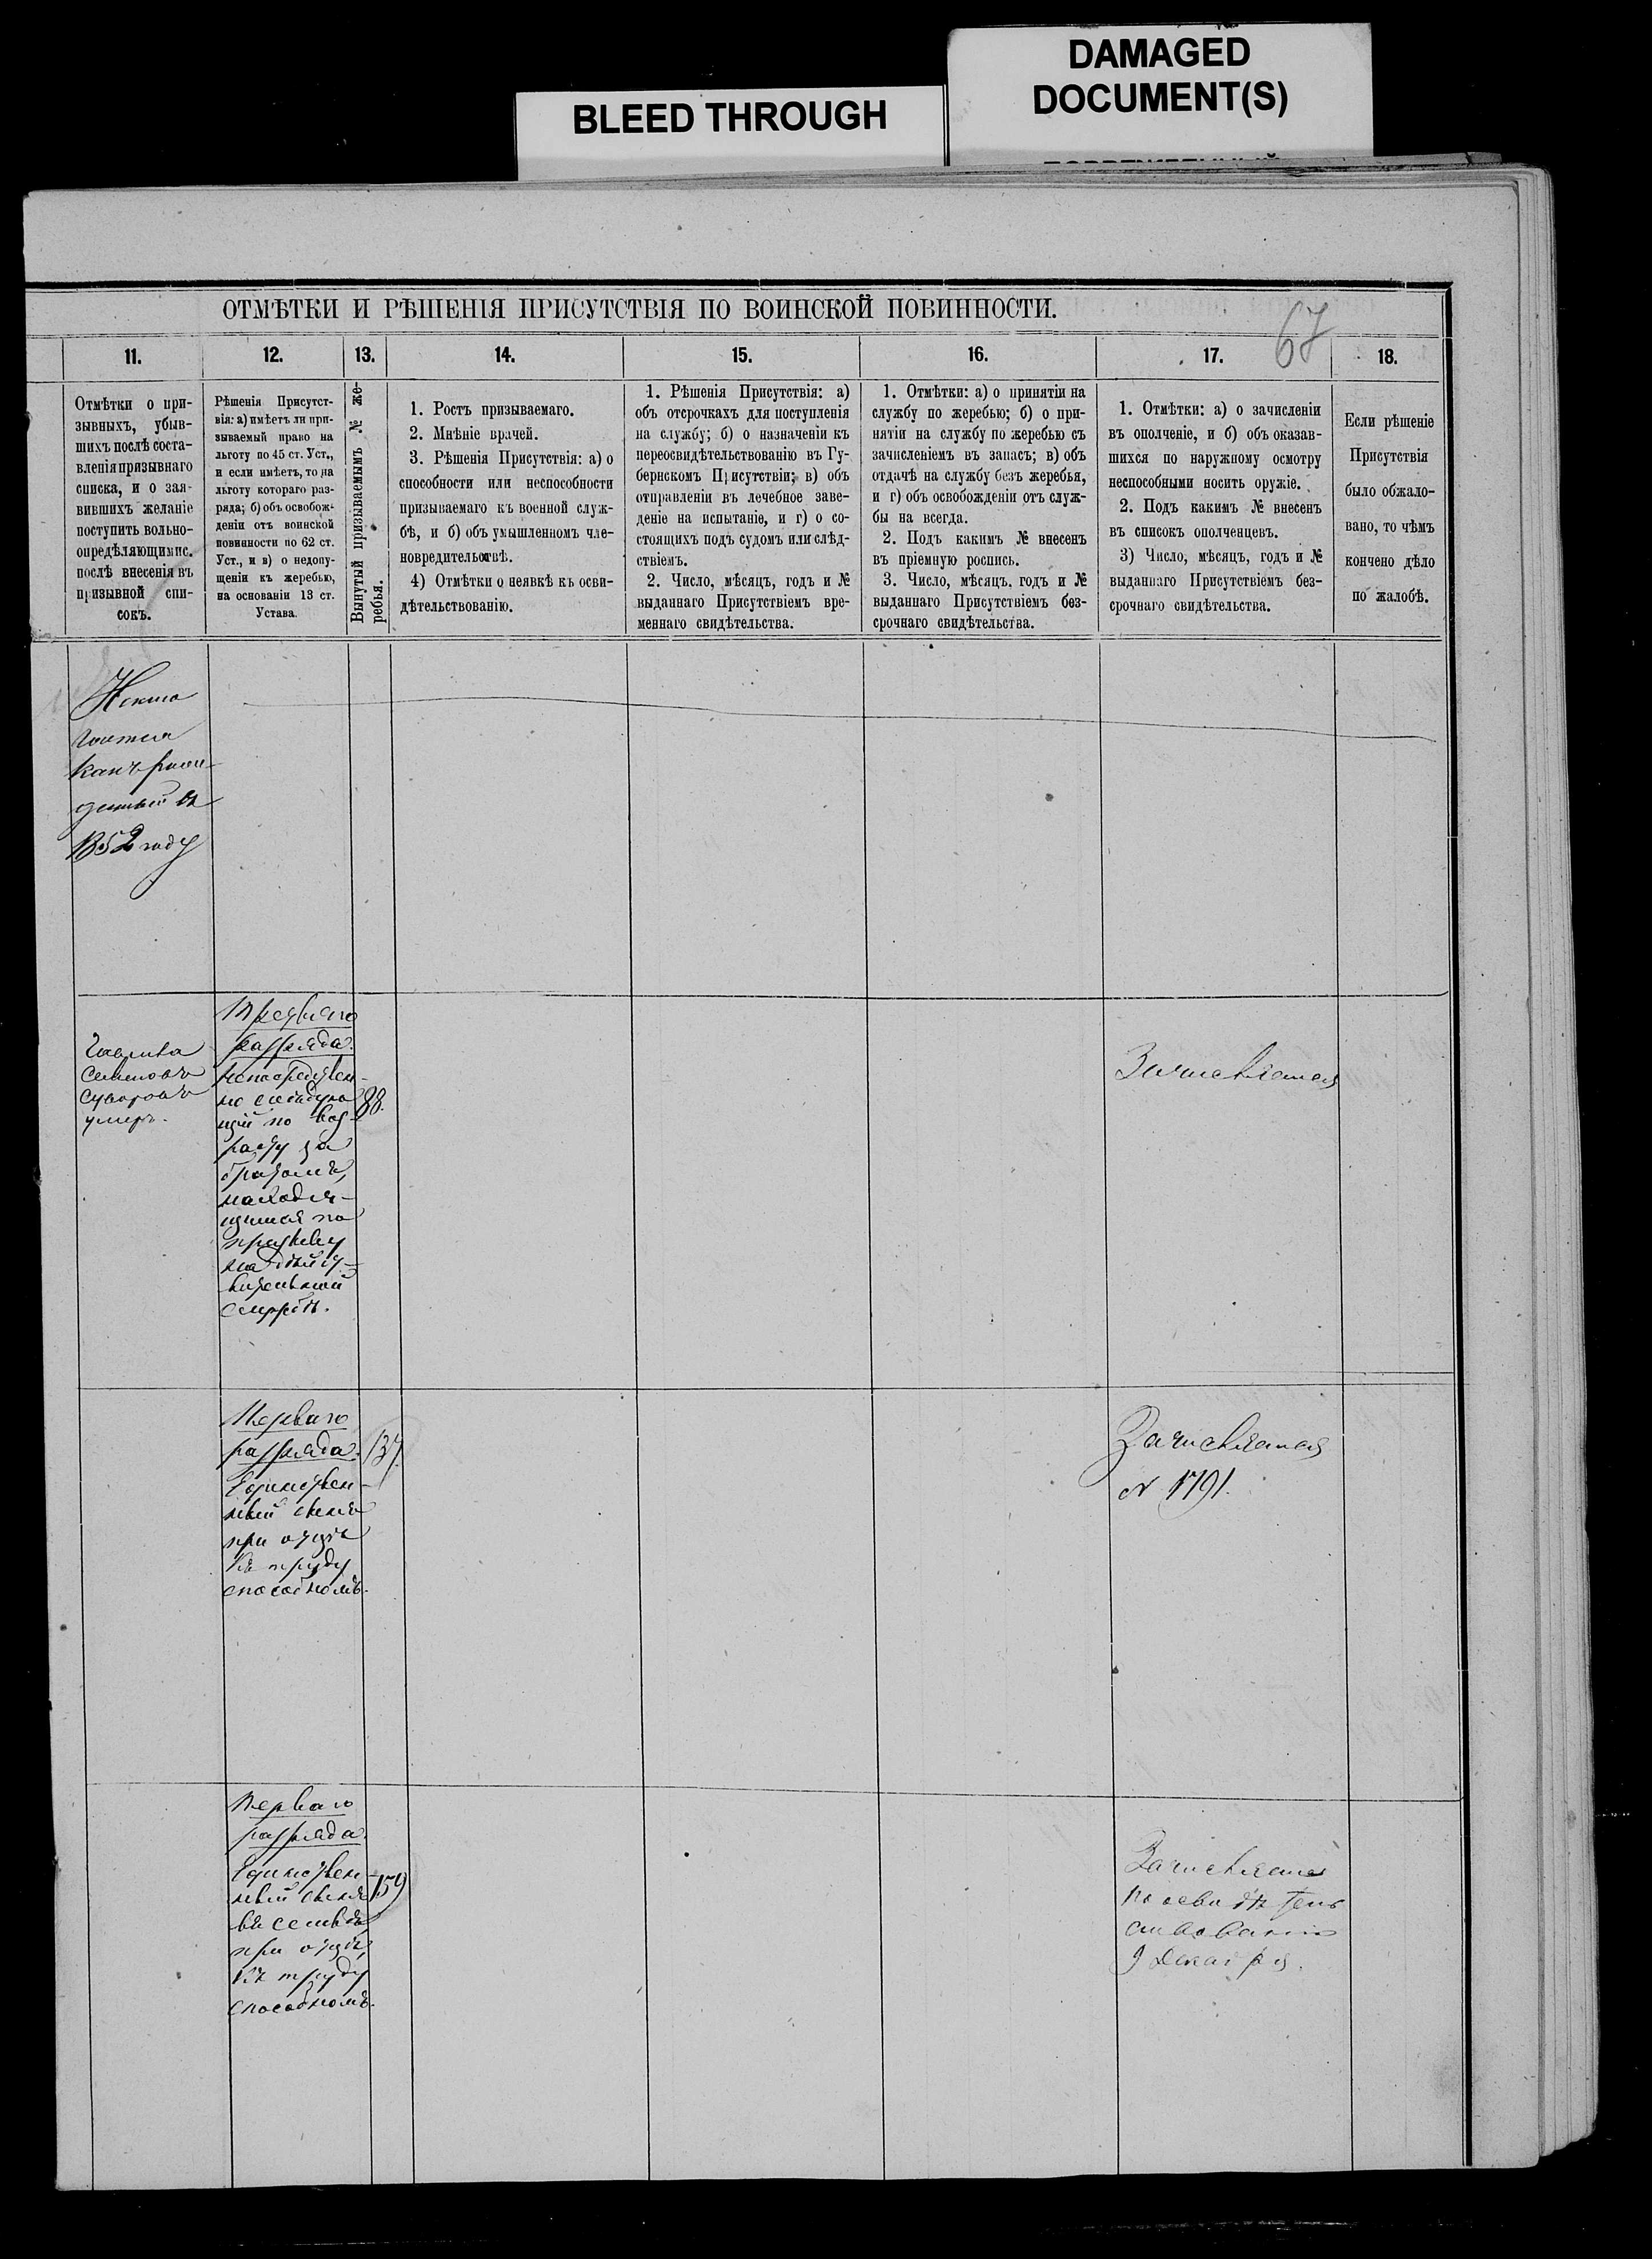 BLEED THROUGH
DAMAGED
DOCUMENT(S)
ОТМѢТКИ И РѢШЕНІЯ ПРИСУТСТВІЯ ПО ВОИНСКОЙ ПОВИННОСТИ.
67
11.
12.
13.
14.
15.
16.
17.
18.
Отмѣтки о при-
зывныхъ, убыв-
шихъ послѣ соста-
вленія призывнаго
списка, и о зая-
вившихъ желаніе
поступить вольно-
опредѣляющимис.
послѣ внесенія въ
призывной спи-
сокъ.
Рѣшенія Присутст-
вія: а) имѣетъ ли при-
зываемый право на
льготу по 45 ст. Уст.,
и если имѣетъ, то на
льготу котораго раз-
ряда; б) объ освобож-
деніи отъ воинской
повинности по 62 ст.
Уст., и в) о недопу-
щеніи къ жеребью,
на основаніи 13 ст.
Устава.
Вынутый призываемымъ № же-
ребья.
1. Ростъ призываемаго.
2. Мнѣніе врачей.
3. Рѣшенія Присутствія: а) о
способности или неспособности
призываемаго къ военной служ-
бѣ, и б) объ умышленномъ чле-
новредительствѣ.
4) Отмѣтки о неявкѣ къ осви-
дѣтельствованію.
1. Рѣшенія Присутствія: а)
объ отсрочкахъ для поступленія
на службу; б) о назначеніи къ
переосвидѣтельствованію въ Гу-
бернскомъ Присутствіи; в) объ
отправленіи въ лечебное заве-
деніе на испытаніе, и г) о со-
стоящихъ подъ судомъ или слѣд-
ствіемъ.
2. Число, мѣсяцъ, годъ и №
выданнаго Присутствіемъ вре-
меннаго свидѣтельства.
1. Отмѣтки: а) о принятіи на
службу по жеребью; б) о при-
нятіи на службу по жеребью съ
зачисленіемъ въ запасъ; в) объ
отдачѣ на службу безъ жеребья,
и г) объ освобожденіи отъ служ-
бы на всегда.
2. Подъ какимъ № внесенъ
въ пріемную роспись.
3. Число, мѣсяцъ, годъ и №
выданнаго Присутствіемъ без-
срочнаго свидѣтельства.
1. Отмѣтки: а) о зачисленіи
въ ополченіе, и б) объ оказав-
шихся по наружному осмотру
неспособными носить оружіе.
2. Подъ какимъ № внесенъ
въ списокъ ополченцевъ.
3) Число, мѣсяцъ, годъ и №
выданнаго Присутствіемъ без-
срочнаго свидѣтельства.
Если рѣшеніе
Присутствія
было обжало-
вано, то чѣмъ
кончено дѣло
по жалобѣ.
какъ рож-
денный въ
1852 году
Гаврила
Семеновъ
Суворовъ
умеръ.
Третьяго
разряда.
Непосредствен-
но слѣдую-
щій по воз-
расту за
братомъ,
находя-
щимся по
призыву
на дѣйст-
вительной
службѣ.
88.
Зачисляется
Перваго
разряда.
Единствен-
ный сынъ
при отцѣ
къ труду
способномъ.
137
Зачисляется
№ 1791.
Перваго
разряда.
Единствен-
ный сынъ
въ семьѣ,
при отцѣ,
къ труду
способномъ.
159
Зачисляется
по освидѣтель-
ствованію
9 Декабря.